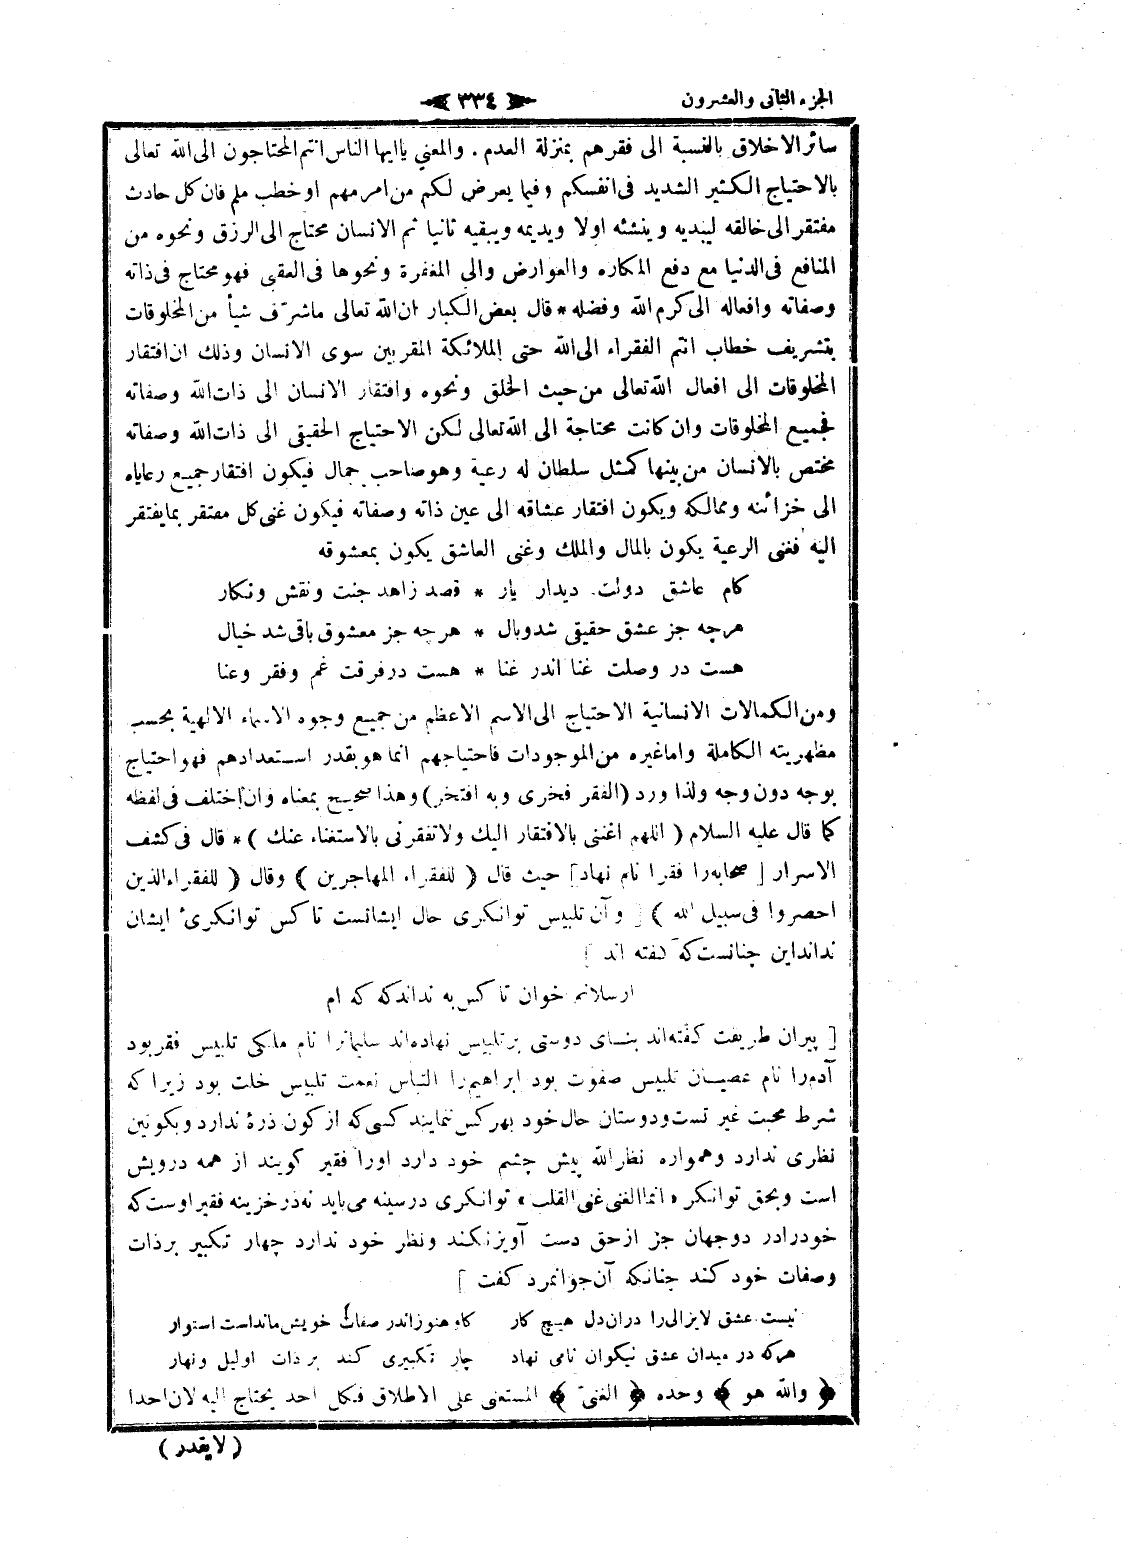 الجزء الثانى والعشرون
﴿ ٣٣٤ ﴾
سائر الاخلاق بالنسبة الى فقرهم بمنزلة العدم . والمعنى ياايها الناس انتم المحتاجون الى الله تعالى
بالاحتياج الكثير الشديد فى انفسكم وفيما يعرض لكم من امر مهم او خطب ملم فان كل حادث
مفتقر الى خالقه ليبديه وينشئه اولا ويديمه ويبقيه ثانيا ثم الانسان محتاج الى الرزق ونحوه من
المنافع فى الدنيا مع دفع المكاره والعوارض والى المغفرة ونحوها فى العقبى فهو محتاج فى ذاته
وصفاته وافعاله الى كرم الله وفضله * قال بعض الكبار ان الله تعالى ماشرّف شيأ من المخلوقات
بتشريف خطاب انتم الفقراء الى الله حتى الملائكة المقربين سوى الانسان وذلك ان افتقار
المخلوقات الى افعال الله تعالى من حيث الخلق ونحوه وافتقار الانسان الى ذات الله وصفاته
فجميع المخلوقات وان كانت محتاجة الى الله تعالى لكن الاحتياج الحقيقى الى ذات الله وصفاته
مختص بالانسان من بينها كمثل سلطان له رعية وهو صاحب جمال فيكون افتقار جميع رعاياه
الى خزائنه وممالكه ويكون افتقار عشاقه الى عين ذاته وصفاته فيكون غنى كل مفتقر بما يفتقر
اليه فغنى الرعية يكون بالمال والملك وغنى العاشق يكون بمعشوقه
كام عاشق دولت ديدار يار * قصد زاهد جنت ونقش ونكار
هرچه جز عشق حقيقى شد وبال * هرچه جز معشوق باقى شد خيال
هست در وصلت غنا اندر غنا * هست در فرقت غم وفقر وعنا
ومن الكمالات الانسانية الاحتياج الى الاسم الاعظم من جميع وجوه الاسماء الالهية بحسب
مظهريته الكاملة واما غيره من الموجودات فاحتياجهم انما هو بقدر استعدادهم فهو احتياج
بوجه دون وجه ولذا ورد (الفقر فخرى وبه افتخر) وهذا صحيح بمعناه وان اختلف فى لفظه
كما قال عليه السلام ( اللهم اغننى بالافتقار اليك ولا تفقرنى بالاستغناء عنك ) * قال فى كشف
الاسرار [ صحابه را فقرا نام نهاد] حيث قال ( للفقراء المهاجرين ) وقال ( للفقراء الذين
احصروا فى سبيل الله ) [ وآن تلبيس توانكرى حال ايشانست تا كس توانكرئ ايشان
نداند اين چنانست كه كفته اند ]
ارسلانم خوان تا كس به نداند كه كه ام
[ پيران طريقت كفته‌اند بناى دوستى بر تلبيس نهاده‌اند سليمانرا نام ملكى تلبيس فقر بود
آدم را نام عصيان تلبيس صفوت بود ابراهيم را التباس نعمت تلبيس خلت بود زيرا كه
شرط محبت غيرتست ودوستان حال خود بهر كس ننمايند كسى كه از كون ذرۀ ندارد وبكونين
نظرى ندارد وهمواره نظر الله پيش چشم خود دارد اورا فقير كويند از همه درويش
است وبحق توانكر « انما الغنى غنى القلب » توانكرى در سينه مى‌بايد نه در خزينه فقير اوست كه
خود را در دو جهان جز از حق دست آويز نكند ونظر خود ندارد چهار تكبير بر ذات
وصفات خود كند چنانكه آن جوانمرد كفت ]
نيست عشق لايزالى را دران دل هيچ كار  كاو هنوز اندر صفات خويش ماندست استوار
هركه در ميدان عشق نيكوان نامى نهاد  چار تكبيرى كند بر ذات او ليل ونهار
﴿ والله هو ﴾ وحده ﴿ الغنىّ ﴾ المستغنى على الاطلاق فكل احد يحتاج اليه لان احدا
( لايقدر )